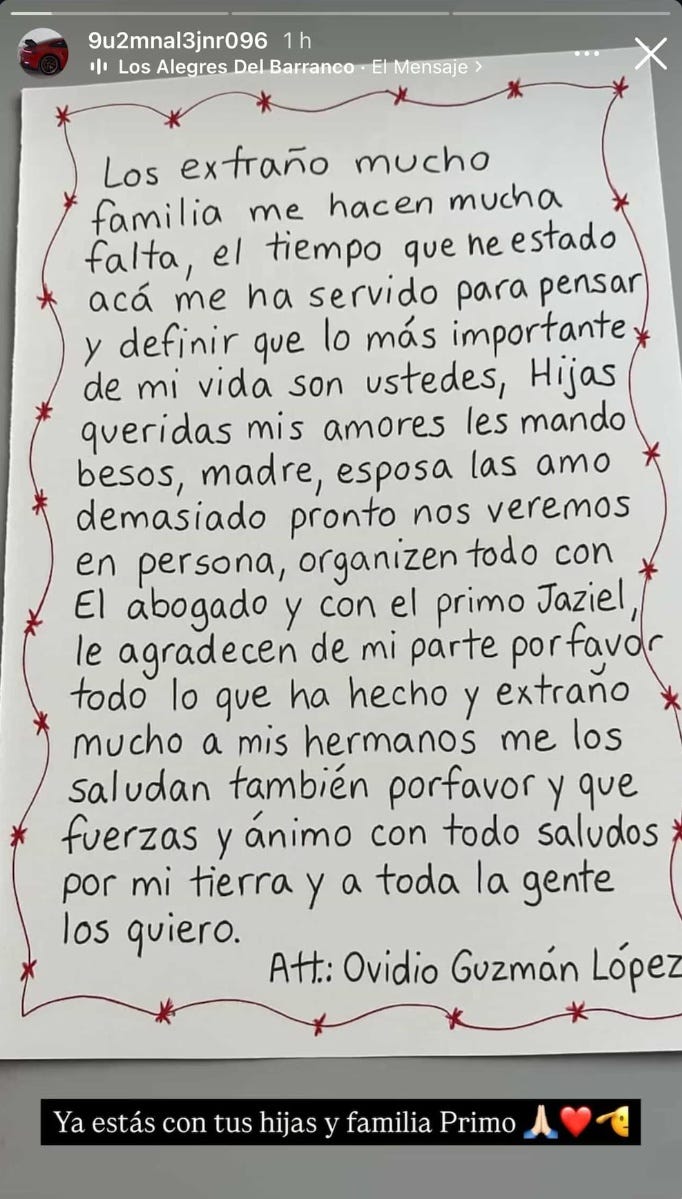 9u2mnal3jnr096 1 h
Los Alegres Del Barranco · El Mensaje >
Los extraño mucho
familia me hacen mucha
falta, el tiempo que he estado
acá me ha servido para pensar
y definir que lo más importante
de mi vida son ustedes, Hijas
queridas mis amores les mando
besos, madre, esposa las amo
demasiado pronto nos veremos
en persona, organizen todo con
El abogado y con el primo Jaziel,
le agradecen de mi parte porfavor
todo lo que ha hecho y extraño
mucho a mis hermanos me los
saludan también porfavor y que
fuerzas y ánimo con todo saludos
por mi tierra y a toda la gente
los quiero.
Att.: Ovidio Guzmán López
Ya estás con tus hijas y familia Primo 🙏🏻❤️🫡